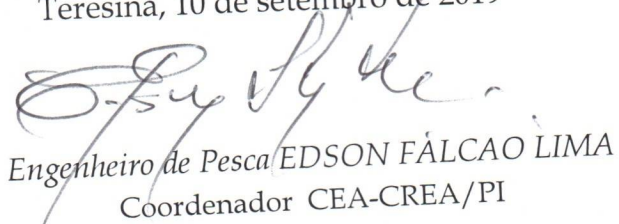 Teresina, 10 de setembro de 2019
Engenheiro de Pesca EDSON FALCAO LIMA
Coordenador CEA-CREA/PI